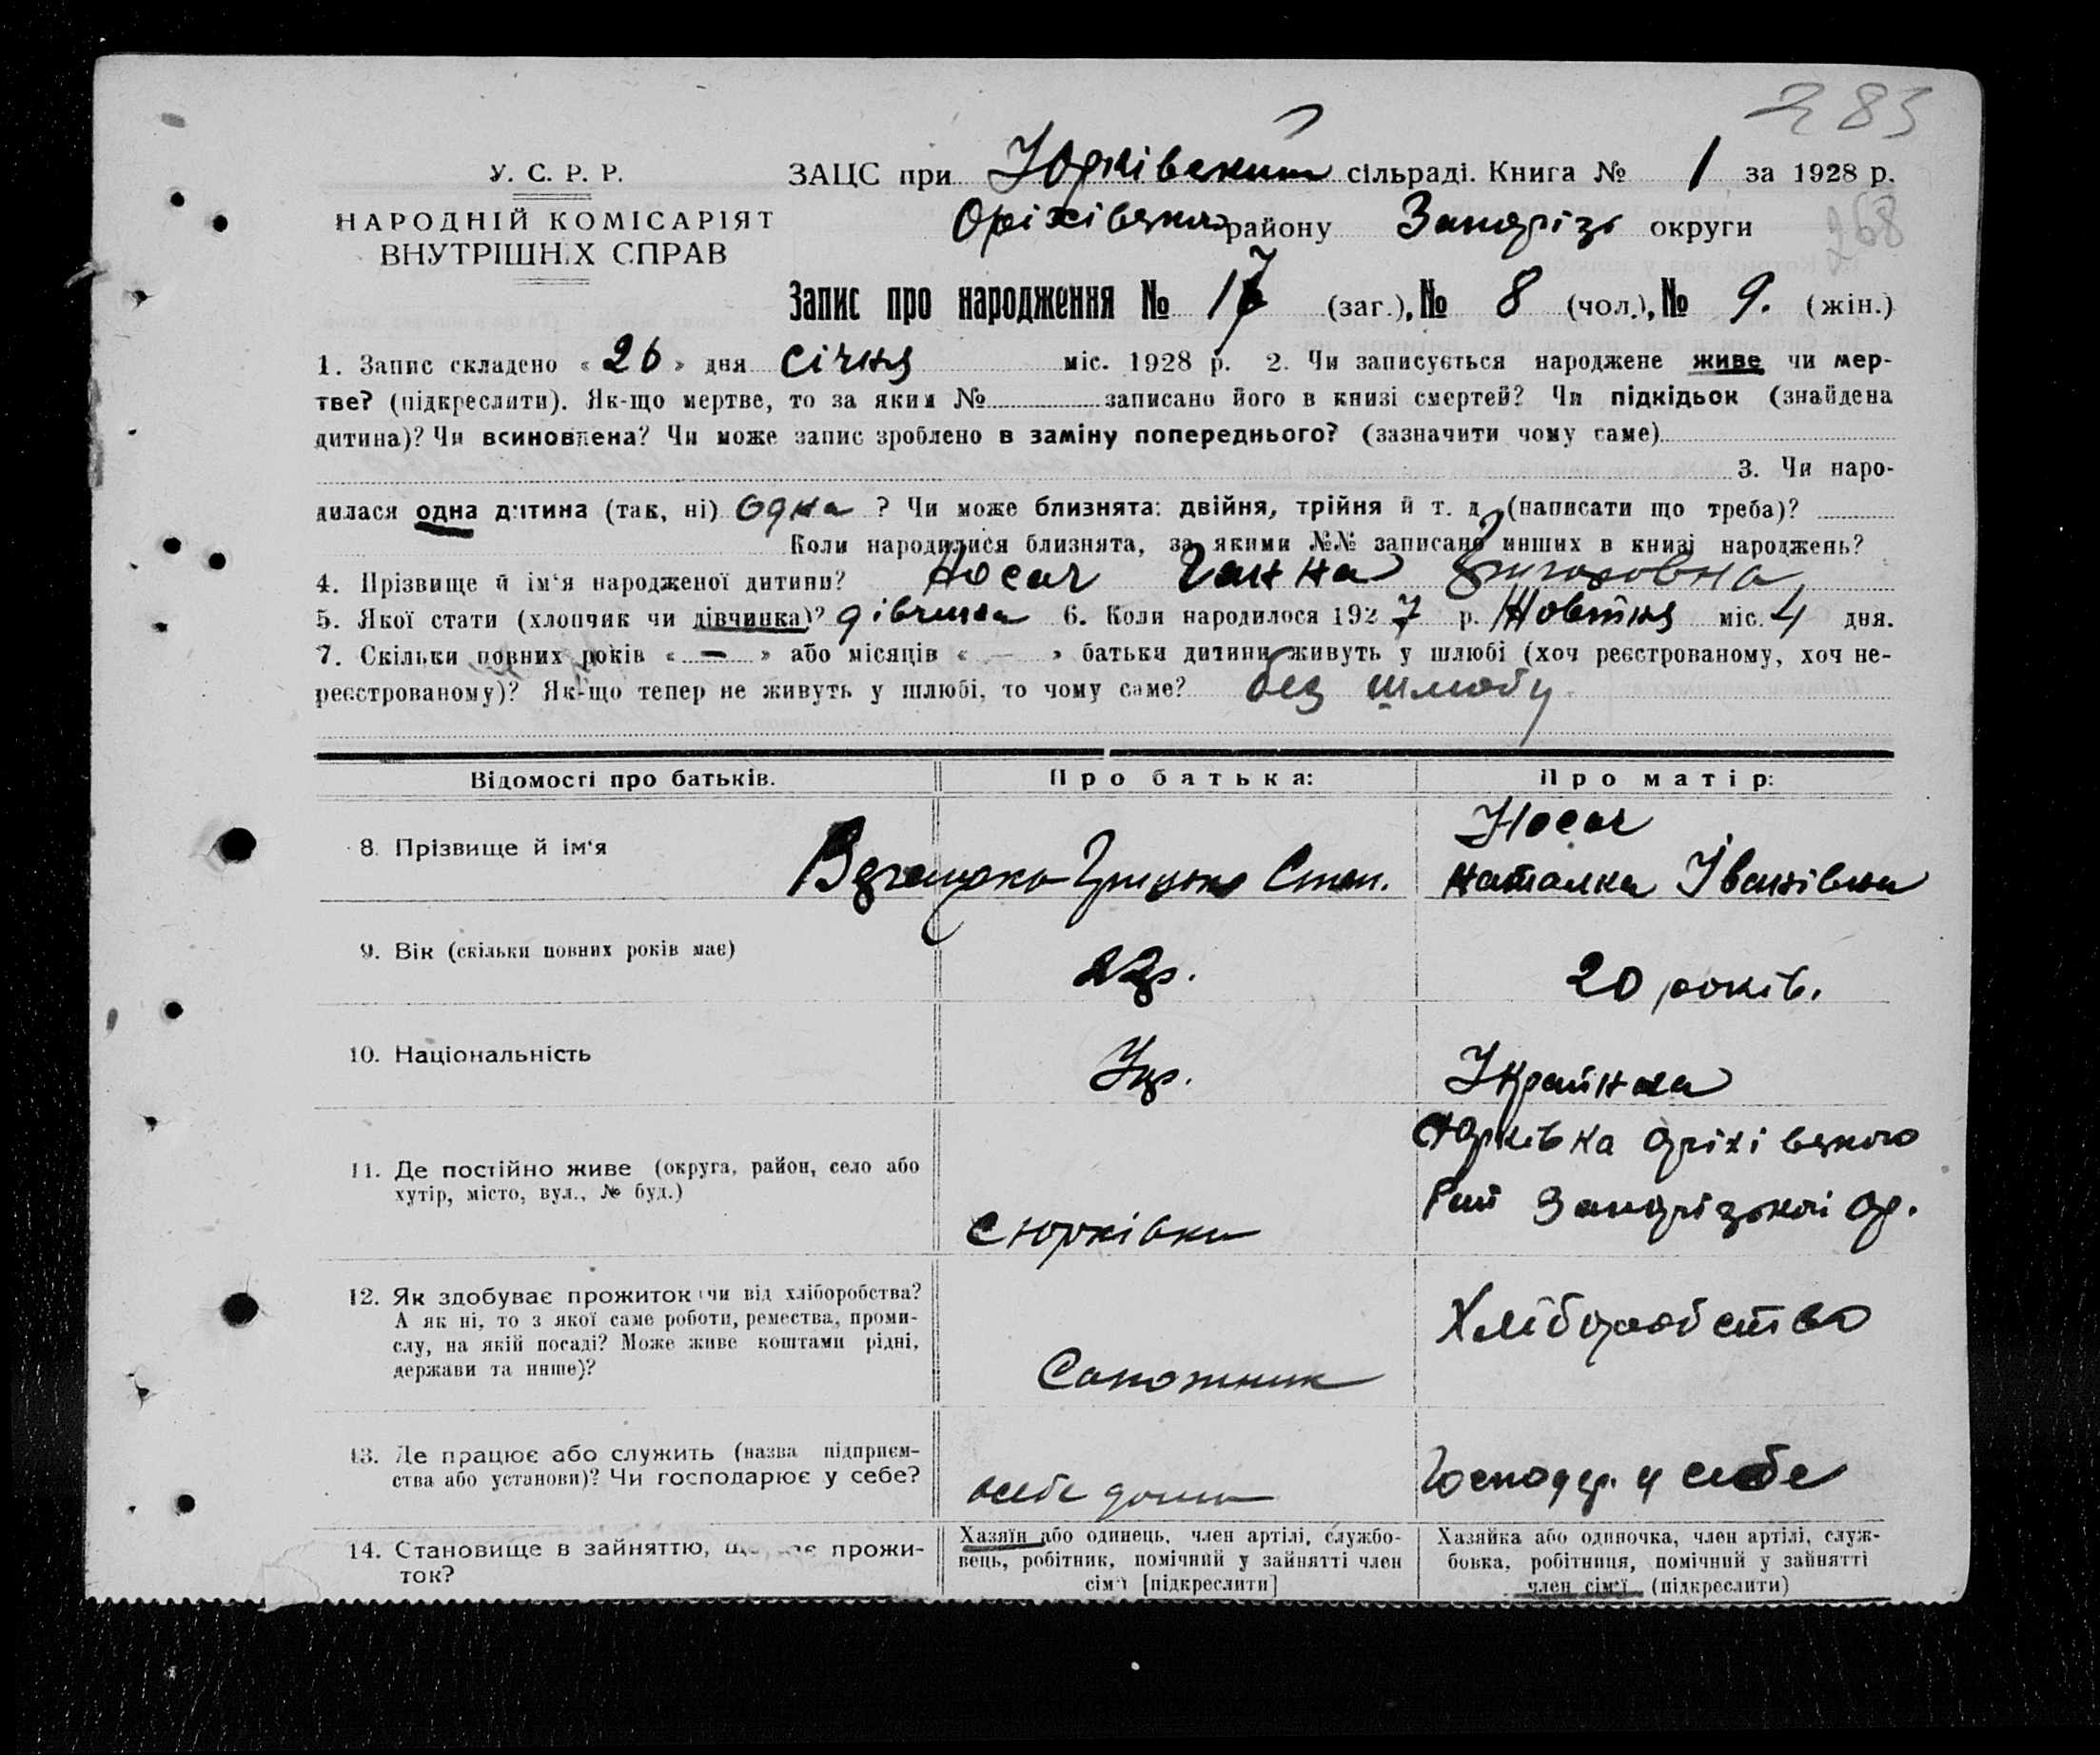 283
У. С. Р. Р.
НАРОДНІЙ КОМІСАРІЯТ
ВНУТРІШНІХ СПРАВ
ЗАЦС при Юрківській сільраді. Книга № 1 за 1928 р.
Оріхівськ району Запоріз округи
268
Запис про народження № 17 (заг.), № 8 (чол.), № 9. (жін.)
1. Запис складено « 26 » дня січня міс. 1928 р. 2. Чи записується народжене живе чи мер-
тве? (підкреслити). Як-що мертве, то за яким № записано його в книзі смертей? Чи підкідьок (знайдена
дитина)? Чи всиновлена? Чи може запис зроблено в заміну попереднього? (зазначити чому саме)
3. Чи наро-
дилася одна дитина (так, ні) одна ? Чи може близнята: двійня, трійня й т. д. (написати що треба)?
Коли народилися близнята, за якими №№ записано инших в книзі народжень?
4. Прізвище й ім'я народженої дитини? Носач Ганна Григоровна
5. Якої стати (хлопчик чи дівчинка)? дівчина 6. Коли народилося 1927 р. Жовтня міс. 4 дня.
7. Скільки повних років « — » або місяців « — » батьки дитини живуть у шлюбі (хоч реєстрованому, хоч не-
реєстрованому)? Як-що тепер не живуть у шлюбі, то чому саме? без шлюбу.
Відомості про батьків.
Про батька:
Про матір:
8. Прізвище й ім'я
Грицько Степ.
Носач
Наталка Іванівна
9. Вік (скільки повних років має)
22р.
20 років.
10. Національність
Укр.
Українка
11. Де постійно живе (округа, район, село або
хутір, місто, вул., № буд.)
с Юрківка
с Юрківка Оріхівського
Рай Запорізької Ок.
12. Як здобуває прожиток (чи від хліборобства?
А як ні, то з якої саме роботи, ремества, проми-
слу, на якій посаді? Може живе коштами рідні,
держави та инше)?
Сапожник
Хліборобство
13. Де працює або служить (назва підприєм-
ства або установи)? Чи господарює у себе?
всебе дома
Господар. у себе
14. Становище в зайняттю, що дає прожи-
ток?
Хазяїн або одинець, член артілі, службо-
вець, робітник, помічний у зайнятті член
сім'ї [підкреслити]
Хазяйка або одиночка, член артілі, служ-
бовка, робітниця, помічний у зайнятті
член сім'ї (підкреслити)